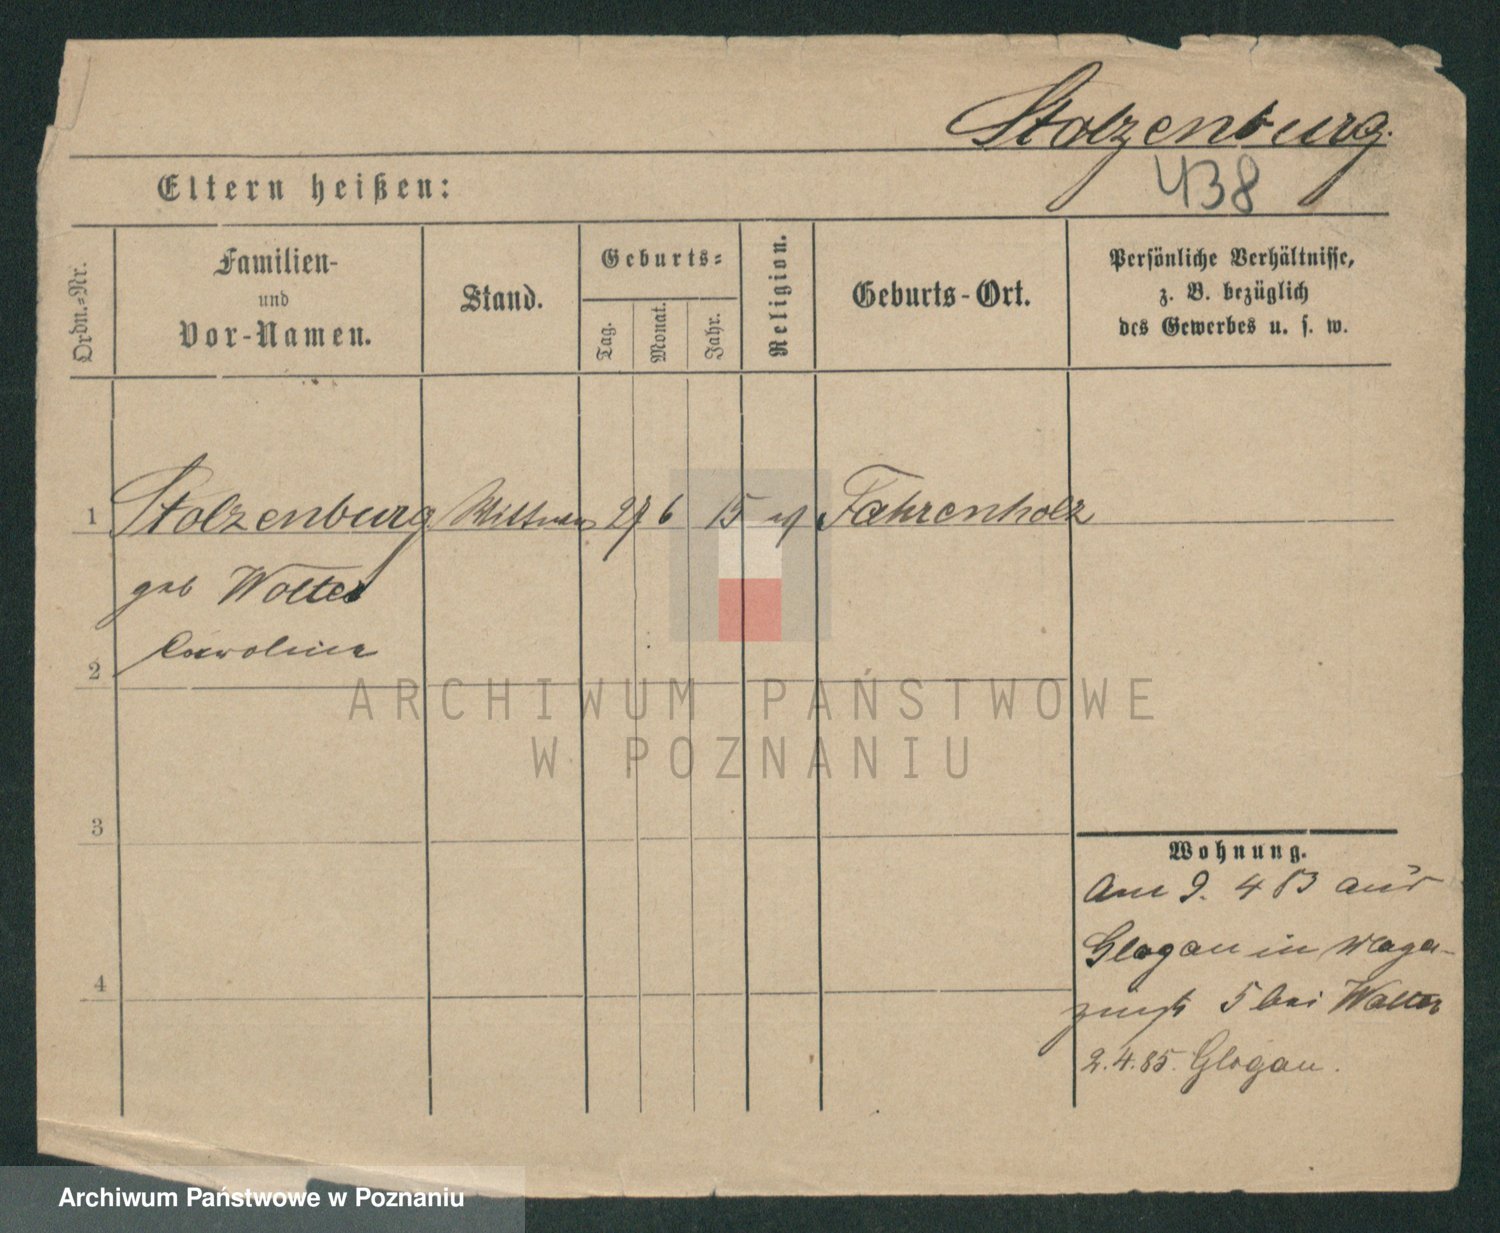 Stolzenburg.
438
Eltern heißen:
Ordn.-Nr.
Familien-
und
Vor-Namen.
Stand.
Geburts-
Tag.
Monat.
Jahr.
Religion.
Geburts-Ort.
Persönliche Verhältnisse,
z. B. bezüglich
des Gewerbes u. s. w.
1 Stolzenburg 27 6 15 ev Fahrenholz
geb Wolter
Caroline
2
3
4
Wohnung.
Am 9. 4 83 aus
Glogau in Maga-
zinstr 5 bei Walter
2.4.85. Glogau.
ARCHIWUM PAŃSTWOWE
W POZNANIU
Archiwum Państwowe w Poznaniu